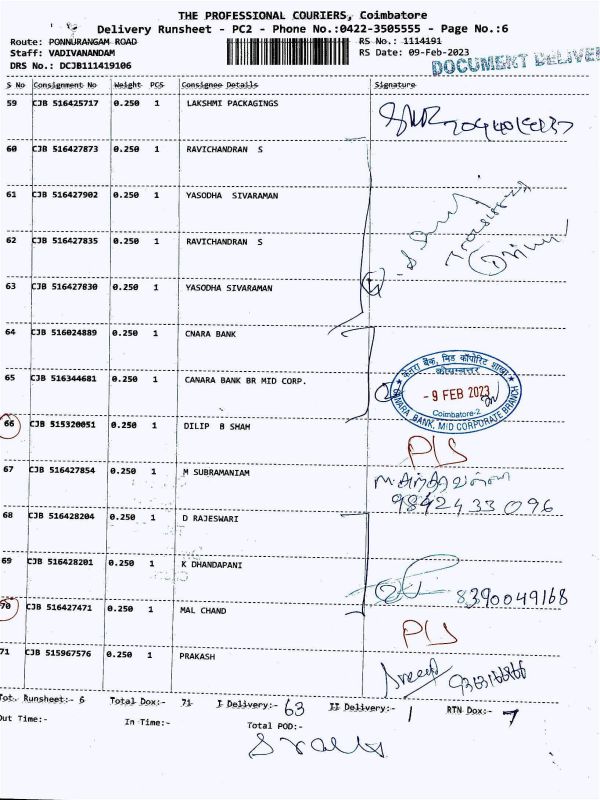 THE PROFESSIONAL COURIERS, Coimbatore
Delivery Runsheet - PC2 - Phone No.:0422-3505555 - Page No.:6
Route: PONNURANGAM ROAD
RS No.: 1114191
Staff: VADIVANANDAM
RS Date: 09-Feb-2023
DRS No.: DCJB111419106
DOCUMENT DELIVER
S No Consignment No Weight PCS Consignee Details Signature
59 CJB 516425717 0.250 1 LAKSHMI PACKAGINGS
60 CJB 516427873 0.250 1 RAVICHANDRAN S
61 CJB 516427902 0.250 1 YASODHA SIVARAMAN
62 CJB 516427835 0.250 1 RAVICHANDRAN S
63 CJB 516427830 0.250 1 YASODHA SIVARAMAN
64 CJB 516024889 0.250 1 CNARA BANK
65 CJB 516344681 0.250 1 CANARA BANK BR MID CORP.
केनरा बैंक, मिड कॉर्पोरेट शाखा
कोयम्बत्तूर
- 9 FEB 2023
Coimbatore-2
CANARA BANK, MID CORPORATE BRANCH
66 CJB 515320051 0.250 1 DILIP B SHAH
P/S
67 CJB 516427854 0.250 1 M SUBRAMANIAM
9842433096
68 CJB 516428204 0.250 1 D RAJESWARI
69 CJB 516428201 0.250 1 K DHANDAPANI
8390049168
70 CJB 516427471 0.250 1 MAL CHAND
P/S
71 CJB 515967576 0.250 1 PRAKASH
Tot. Runsheet:- 6 Total Dox:- 71 I Delivery:- 63 II Delivery:- 1 RTN Dox:- 7
Out Time:- In Time:- Total POD:-